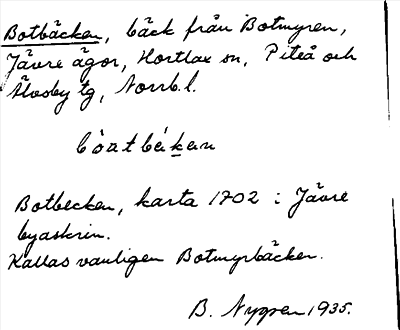 Botbäcken, bäck från Botmyren,
Jävre ägor, Hortlax sn, Piteå och
Älvsby tg, Norrb.l.
bòatbékan
Botbecken, karta 1702 i Jävre
byaskrin.
Kallas vanligen Botmyrbäcken.
B. Nygren 1935.